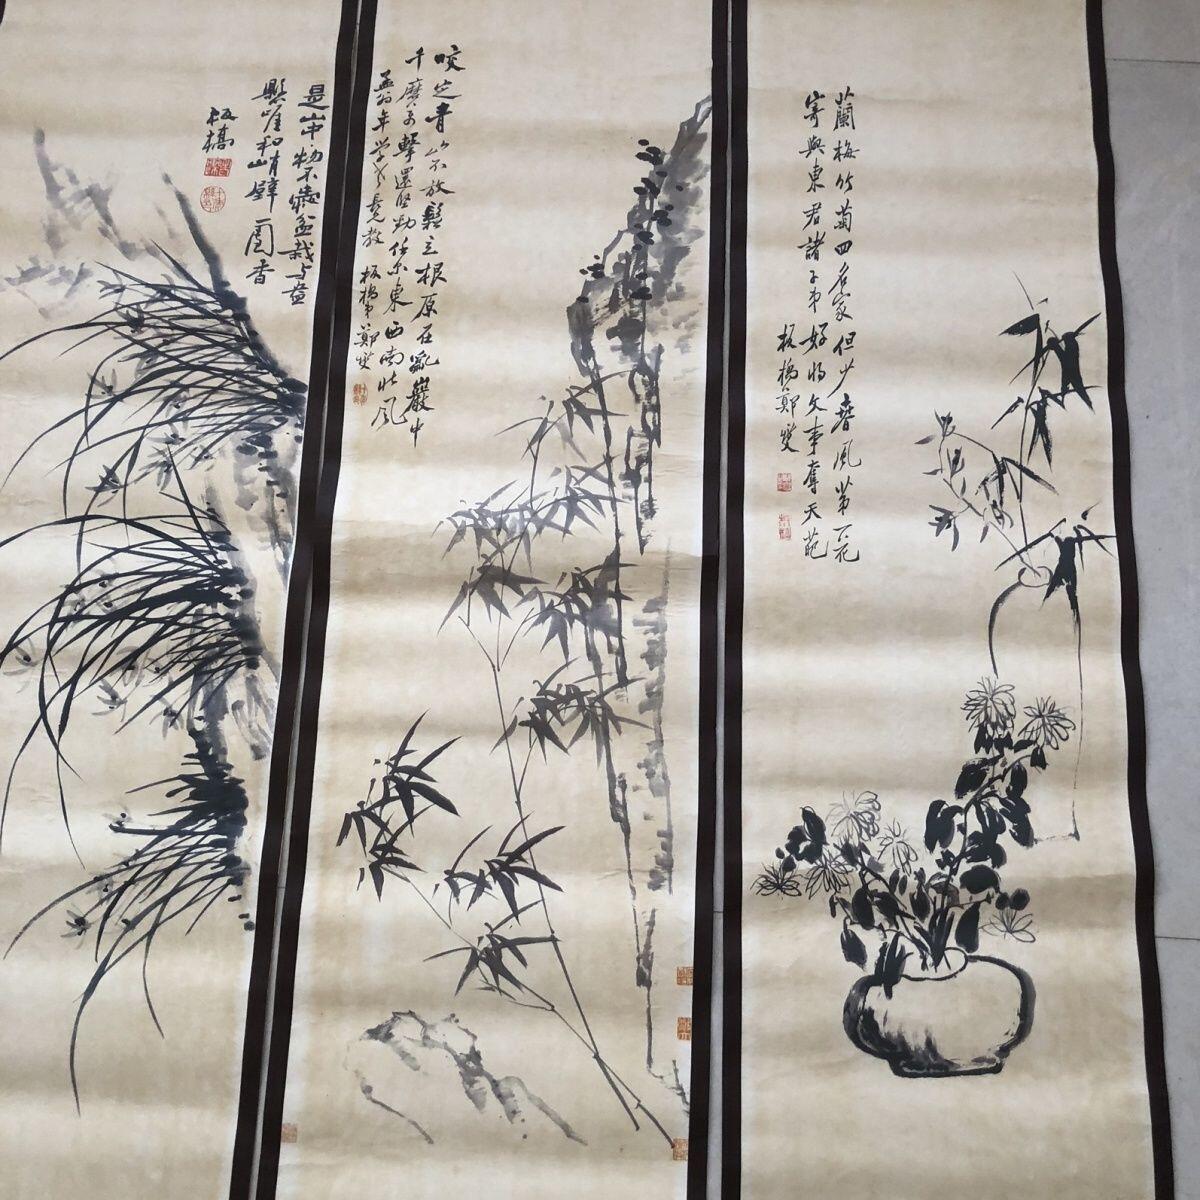 蘭梅竹菊四名家但少春風第一花
寄與東君諸子弟好將文事奪天葩
板橋鄭燮
咬定青山不放鬆立根原在亂巖中
千磨万擊還堅勁任尔東西南北风
板橋鄭燮
是山中物不齒盆栽与盎
懸崖和峭壁
板橋